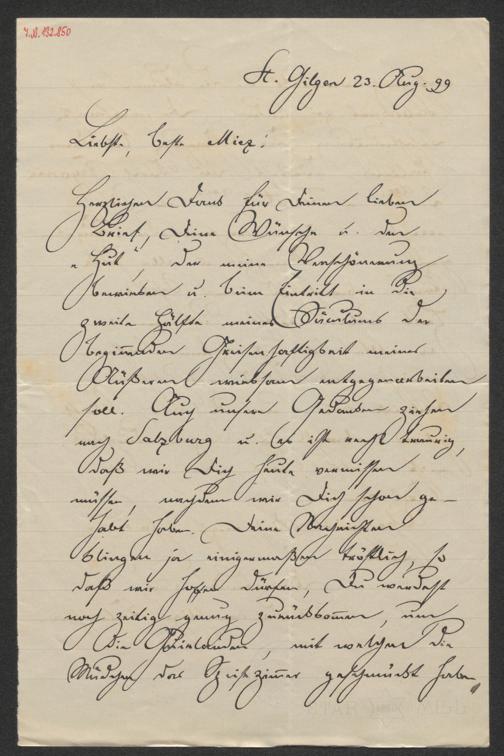 I.N. 132.850
St. Gilgen 23. Aug. 99
Liebste, beste Miez!
Herzlichen Dank für Deinen lieben
Brief, Deine Wünsche u. den
"Hut", der meine Verschönerung
bewirken u. beim Eintritt in die
zweite Hälfte meines Säculums der
beginnenden Greisenhaftigkeit meines
Äußeren wirksam entgegenarbeiten
soll. Auch unsere Gedanken ziehen
nach Salzburg u. es ist recht traurig,
daß wir Dich heute vermissen
müssen, nachdem wir Dich schon ge-
habt haben. Deine Nachrichten
klingen ja einigermaßen tröstlich, so
daß wir hoffen dürfen, Du werdest
noch zeitig genug zurückkommen, um
die Guirlanden, mit welchen die
Mädchen das Speisezimmer geschmückt haben,